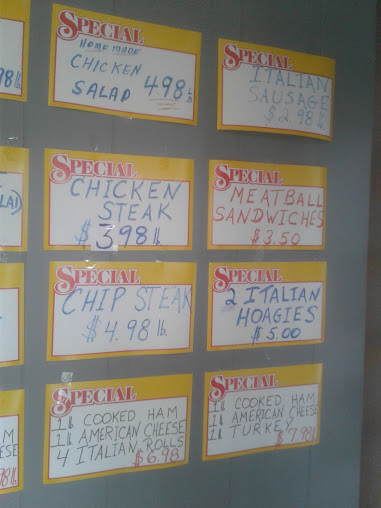 98 lb
SPECIAL
HOME MADE
CHICKEN
SALAD 4.98 LB
SPECIAL
ITALIAN
SAUSAGE
$2.98 lb
LAD)
SPECIAL
CHICKEN
STEAK
$3.98 lb.
SPECIAL
MEATBALL
SANDWICHES
$3.50
SPECIAL
CHIP STEAK
$4.98 lb.
SPECIAL
2 ITALIAN
HOAGIES
$5.00
M
ESE
98 lb
SPECIAL
1 lb COOKED HAM
1 lb AMERICAN CHEESE
4 ITALIAN ROLLS
$6.98
SPECIAL
1 lb COOKED HAM
1 lb AMERICAN CHEESE
1 lb TURKEY
$7.98